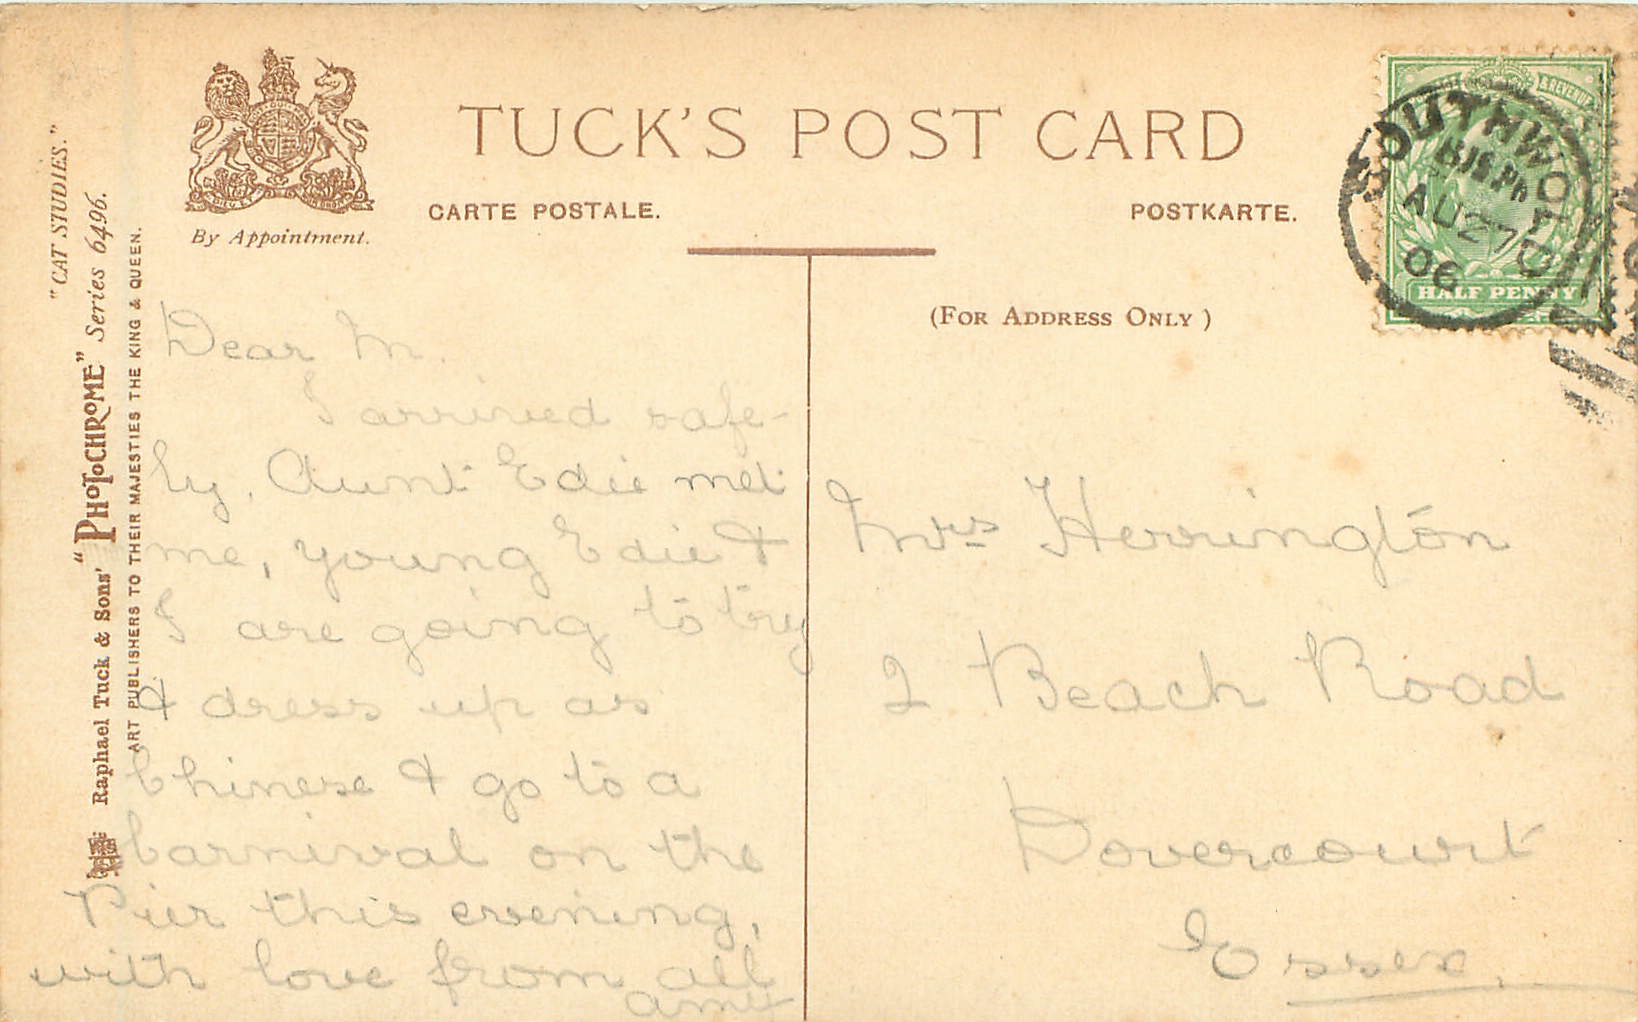 TUCK'S POST CARD
CARTE POSTALE.
POSTKARTE.
By Appointment.
(FOR ADDRESS ONLY)
"CAT STUDIES."
Raphael Tuck & Sons' "PHOTOCHROME" Series 6496.
ART PUBLISHERS TO THEIR MAJESTIES THE KING & QUEEN.
Dear M.
I arrived safe-
ly, Aunt Edie met
me, young Edie &
I are going to try
& dress up as
Chinese & go to a
Carnival on the
Pier this evening,
with love from all
Amy
Mrs Herrington
2 Beach Road
Dovercourt
Essex.
& REVENUE
HALF PENNY
SOUTHWOLD
AU 27
06